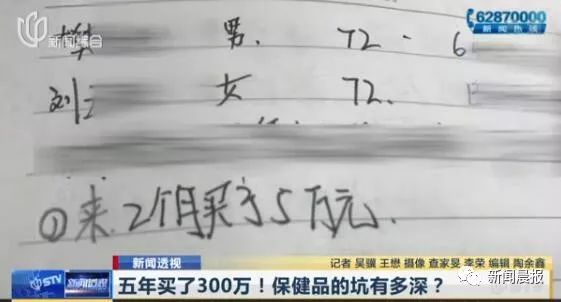 新闻综合
62870000
新闻热线
樊 男. 72 - 6
刘 女 72.
①来.2个月买了5万元.
新闻透视
记者 吴骥 王懋 摄像 查家旻 李荣 编辑 陶余鑫
STV 新闻透视
五年买了300万！保健品的坑有多深？
新闻晨报